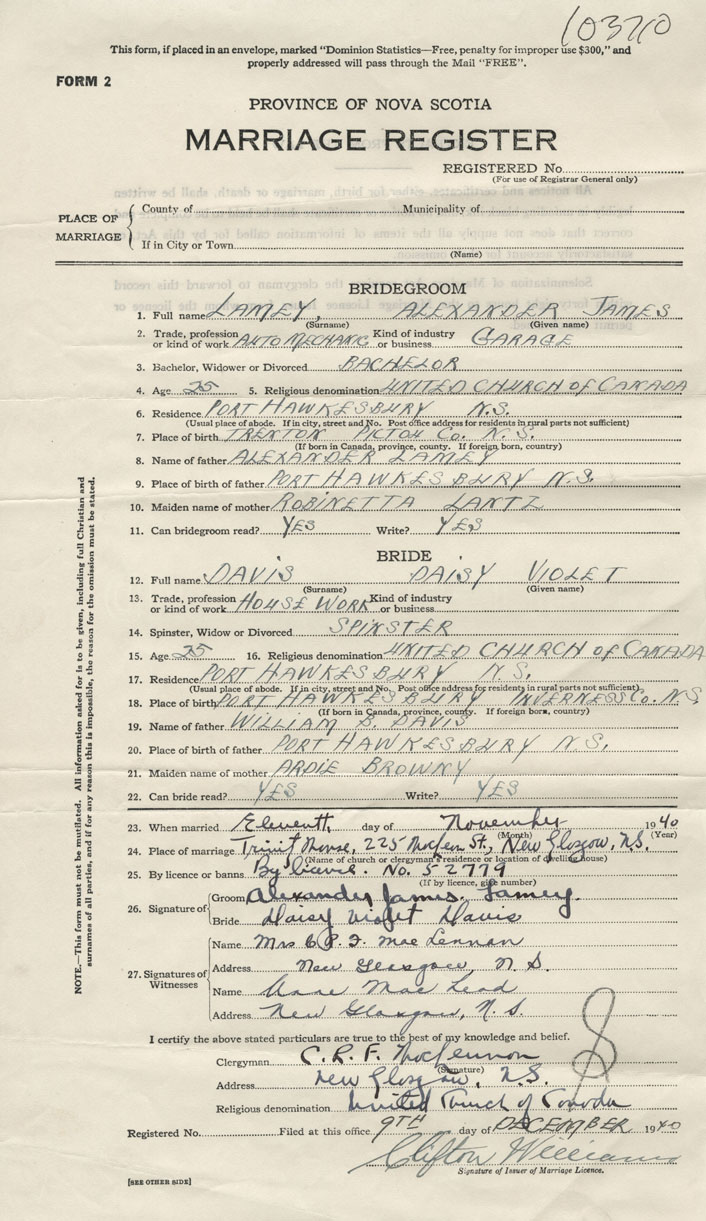 10370
This form, if placed in an envelope, marked "Dominion Statistics—Free, penalty for improper use $300," and
properly addressed will pass through the Mail "FREE".
FORM 2
PROVINCE OF NOVA SCOTIA
MARRIAGE REGISTER
REGISTERED No.
(For use of Registrar General only)
PLACE OF MARRIAGE
County of Municipality of
If in City or Town
(Name)
BRIDEGROOM
1. Full name LAMEY, ALEXANDER JAMES
(Surname) (Given name)
2. Trade, profession or kind of work AUTO MECHANIC Kind of industry or business. GARAGE
3. Bachelor, Widower or Divorced BACHELOR
4. Age 25 5. Religious denomination UNITED CHURCH OF CANADA
6. Residence PORT HAWKESBURY N.S.
(Usual place of abode. If in city, street and No. Post office address for residents in rural parts not sufficient)
7. Place of birth TRENTON PICTOU Co. N.S.
(If born in Canada, province, county. If foreign born, country)
8. Name of father ALEXANDER LAMEY
9. Place of birth of father PORT HAWKESBURY N.S.
10. Maiden name of mother ROBINETTA LANTZ
11. Can bridegroom read? YES Write? YES
BRIDE
12. Full name DAVIS DAISY VIOLET
(Surname) (Given name)
13. Trade, profession or kind of work HOUSE WORK Kind of industry or business
14. Spinster, Widow or Divorced SPINSTER
15. Age 25 16. Religious denomination UNITED CHURCH OF CANADA
17. Residence PORT HAWKESBURY N.S.
(Usual place of abode. If in city, street and No. Post office address for residents in rural parts not sufficient)
18. Place of birth PORT HAWKESBURY INVERNESS Co. N.S
(If born in Canada, province, county. If foreign born, country)
19. Name of father WILLIAM B. DAVIS
20. Place of birth of father PORT HAWKESBURY N.S.
21. Maiden name of mother ARDIE BROWNY
22. Can bride read? YES Write? YES
23. When married Eleventh day of November 1940
(Month) (Year)
24. Place of marriage Trinity Manse, 225 St., New Glasgow, N.S.
(Name of church or clergyman's residence or location of dwelling house)
25. By licence or banns By licence. No. 52779
(If by licence, give number)
26. Signature of
Groom Alexander James. Lamey.
Bride Daisy Violet Davis
27. Signatures of Witnesses
Name Mrs C.R.F. MacLennan
Address New Glasgow, N.S.
Name Anne MacLeod
Address New Glasgow, N.S.
I certify the above stated particulars are true to the best of my knowledge and belief.
Clergyman C.R.F. MacLennan
(Signature)
Address New Glasgow, N.S.
Religious denomination United Church of Canada
Registered No. Filed at this office 9TH day of DECEMBER 1940
Clifton Williams
Signature of Issuer of Marriage Licence.
[SEE OTHER SIDE]
NOTE.—This form must not be mutilated. All information asked for is to be given, including full Christian and
surnames of all parties, and if for any reason this is impossible, the reason for the omission must be stated.